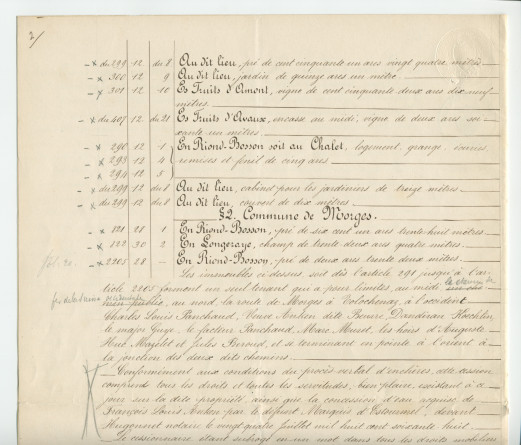 2/
du 299 12 du 8 Au dit lieu, pré de cent cinquante un ares vingt quatre mètres
300 12 9 Au dit lieu, jardin de quinze ares un mètre
301 12 10 Es Fruits d'Amont, vigne de cent cinquante deux ares dix-neuf
mètres
du 407 12 du 21 Es Fruits d'Avaux, en casse au midi, vigne de deux ares soi-
xante un mètres
290 12 1 En Riond-Bosson soit au Chalet, logement, grange, écurie,
293 12 4 remises et fenil de cinq ares
294 12 5
du 299 12 du 8 Au dit lieu, cabinet pour les jardiniers de treize mètres
du 299 12 du 8 Au dit lieu, couvert de dix mètres
§2. Commune de Morges.
121 28 1 En Riond-Bosson, pré de six cent un ares trente huit mètres
122 30 2 En Longeraye, champ de trente deux ares quatre mètres
2205 28 En Riond-Bosson, pré de deux ares trente deux mètres
Les immeubles ci dessus, soit dès l'article 291 jusqu'à l'ar-
ticle 2205 forment un seul tenant qui a pour limites, au midi le chemin
au nord la route de Morges à Tolochenaz, à l'occident
Charles Louis Panchaud, Dandiran
le major Guex, le facteur Panchaud, Marc Muret, les hoirs d'Auguste
et Jules et se terminant en pointe à l'orient à
la jonction des deux dits chemins
Conformément aux conditions du procès verbal d'enchères, cette cession
comprend tous les droits et toutes les servitudes, bien plaire existant à ce
jour sur la dite propriété, ainsi que la concession d'eau acquise de
François Louis par le défunt Marquis d'Estourmel, devant
Hugonnet notaire le vingt quatre juillet mil huit cent soixante huit
Le cessionnaire étant subrogé en un mot dans tous les droits